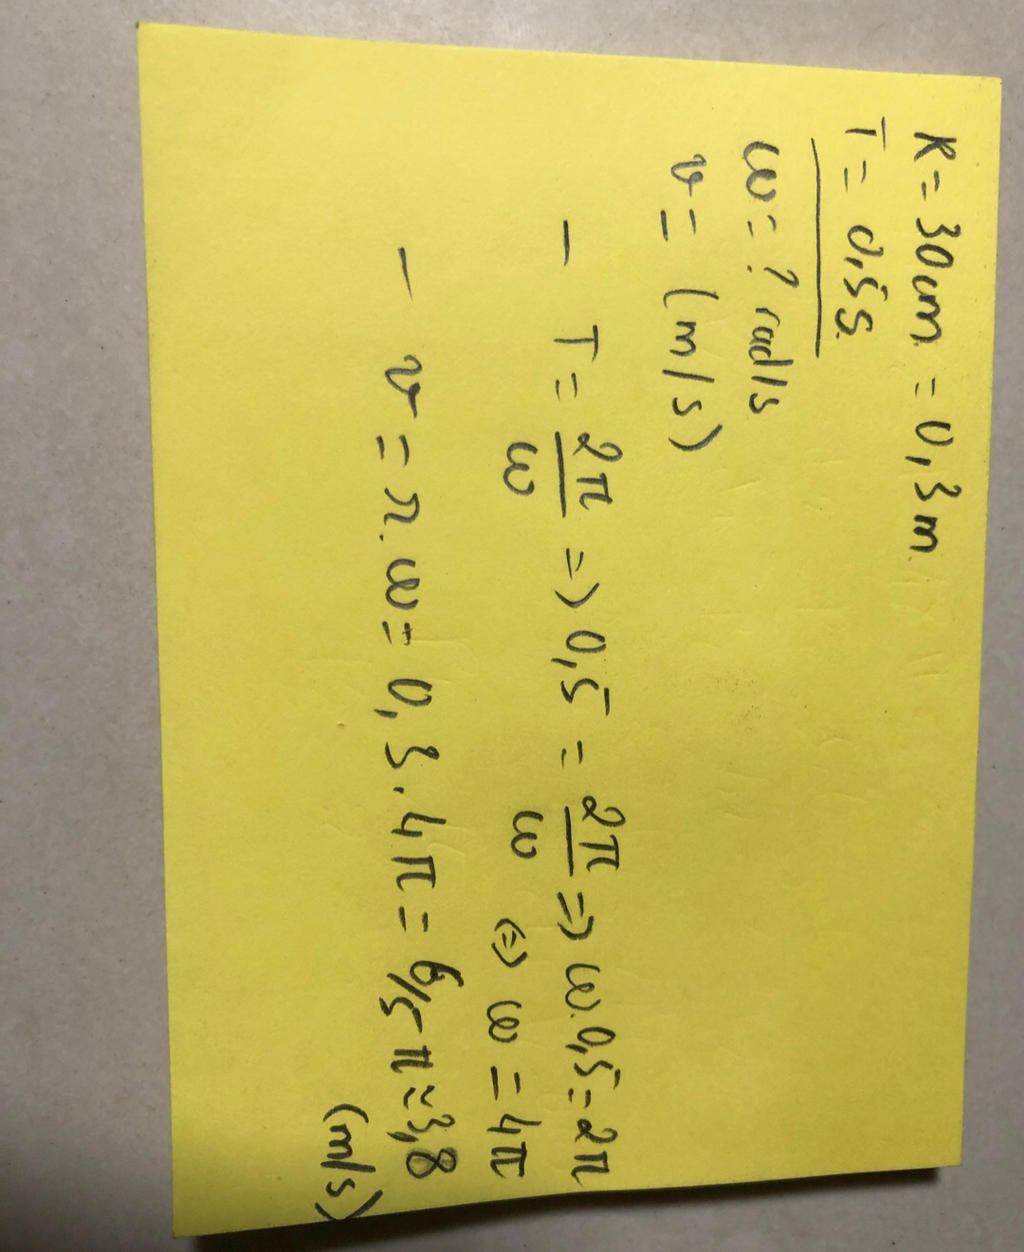 R = 30cm = 0,3m
T = 0,5s.
ω = ? rad/s
v = (m/s)
– T = 2π/ω => 0,5 = 2π/ω => ω.0,5 = 2π
<=> ω = 4π
– v = r.ω = 0,3.4π = 6/5 π ≈ 3,8
(m/s)